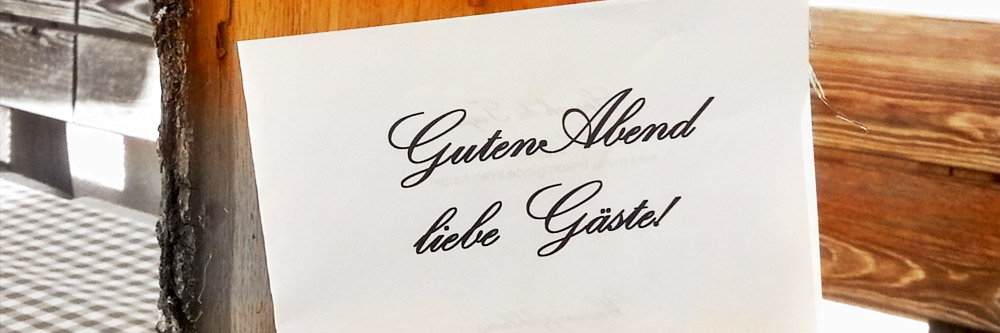 Guten Abend
liebe Gäste!